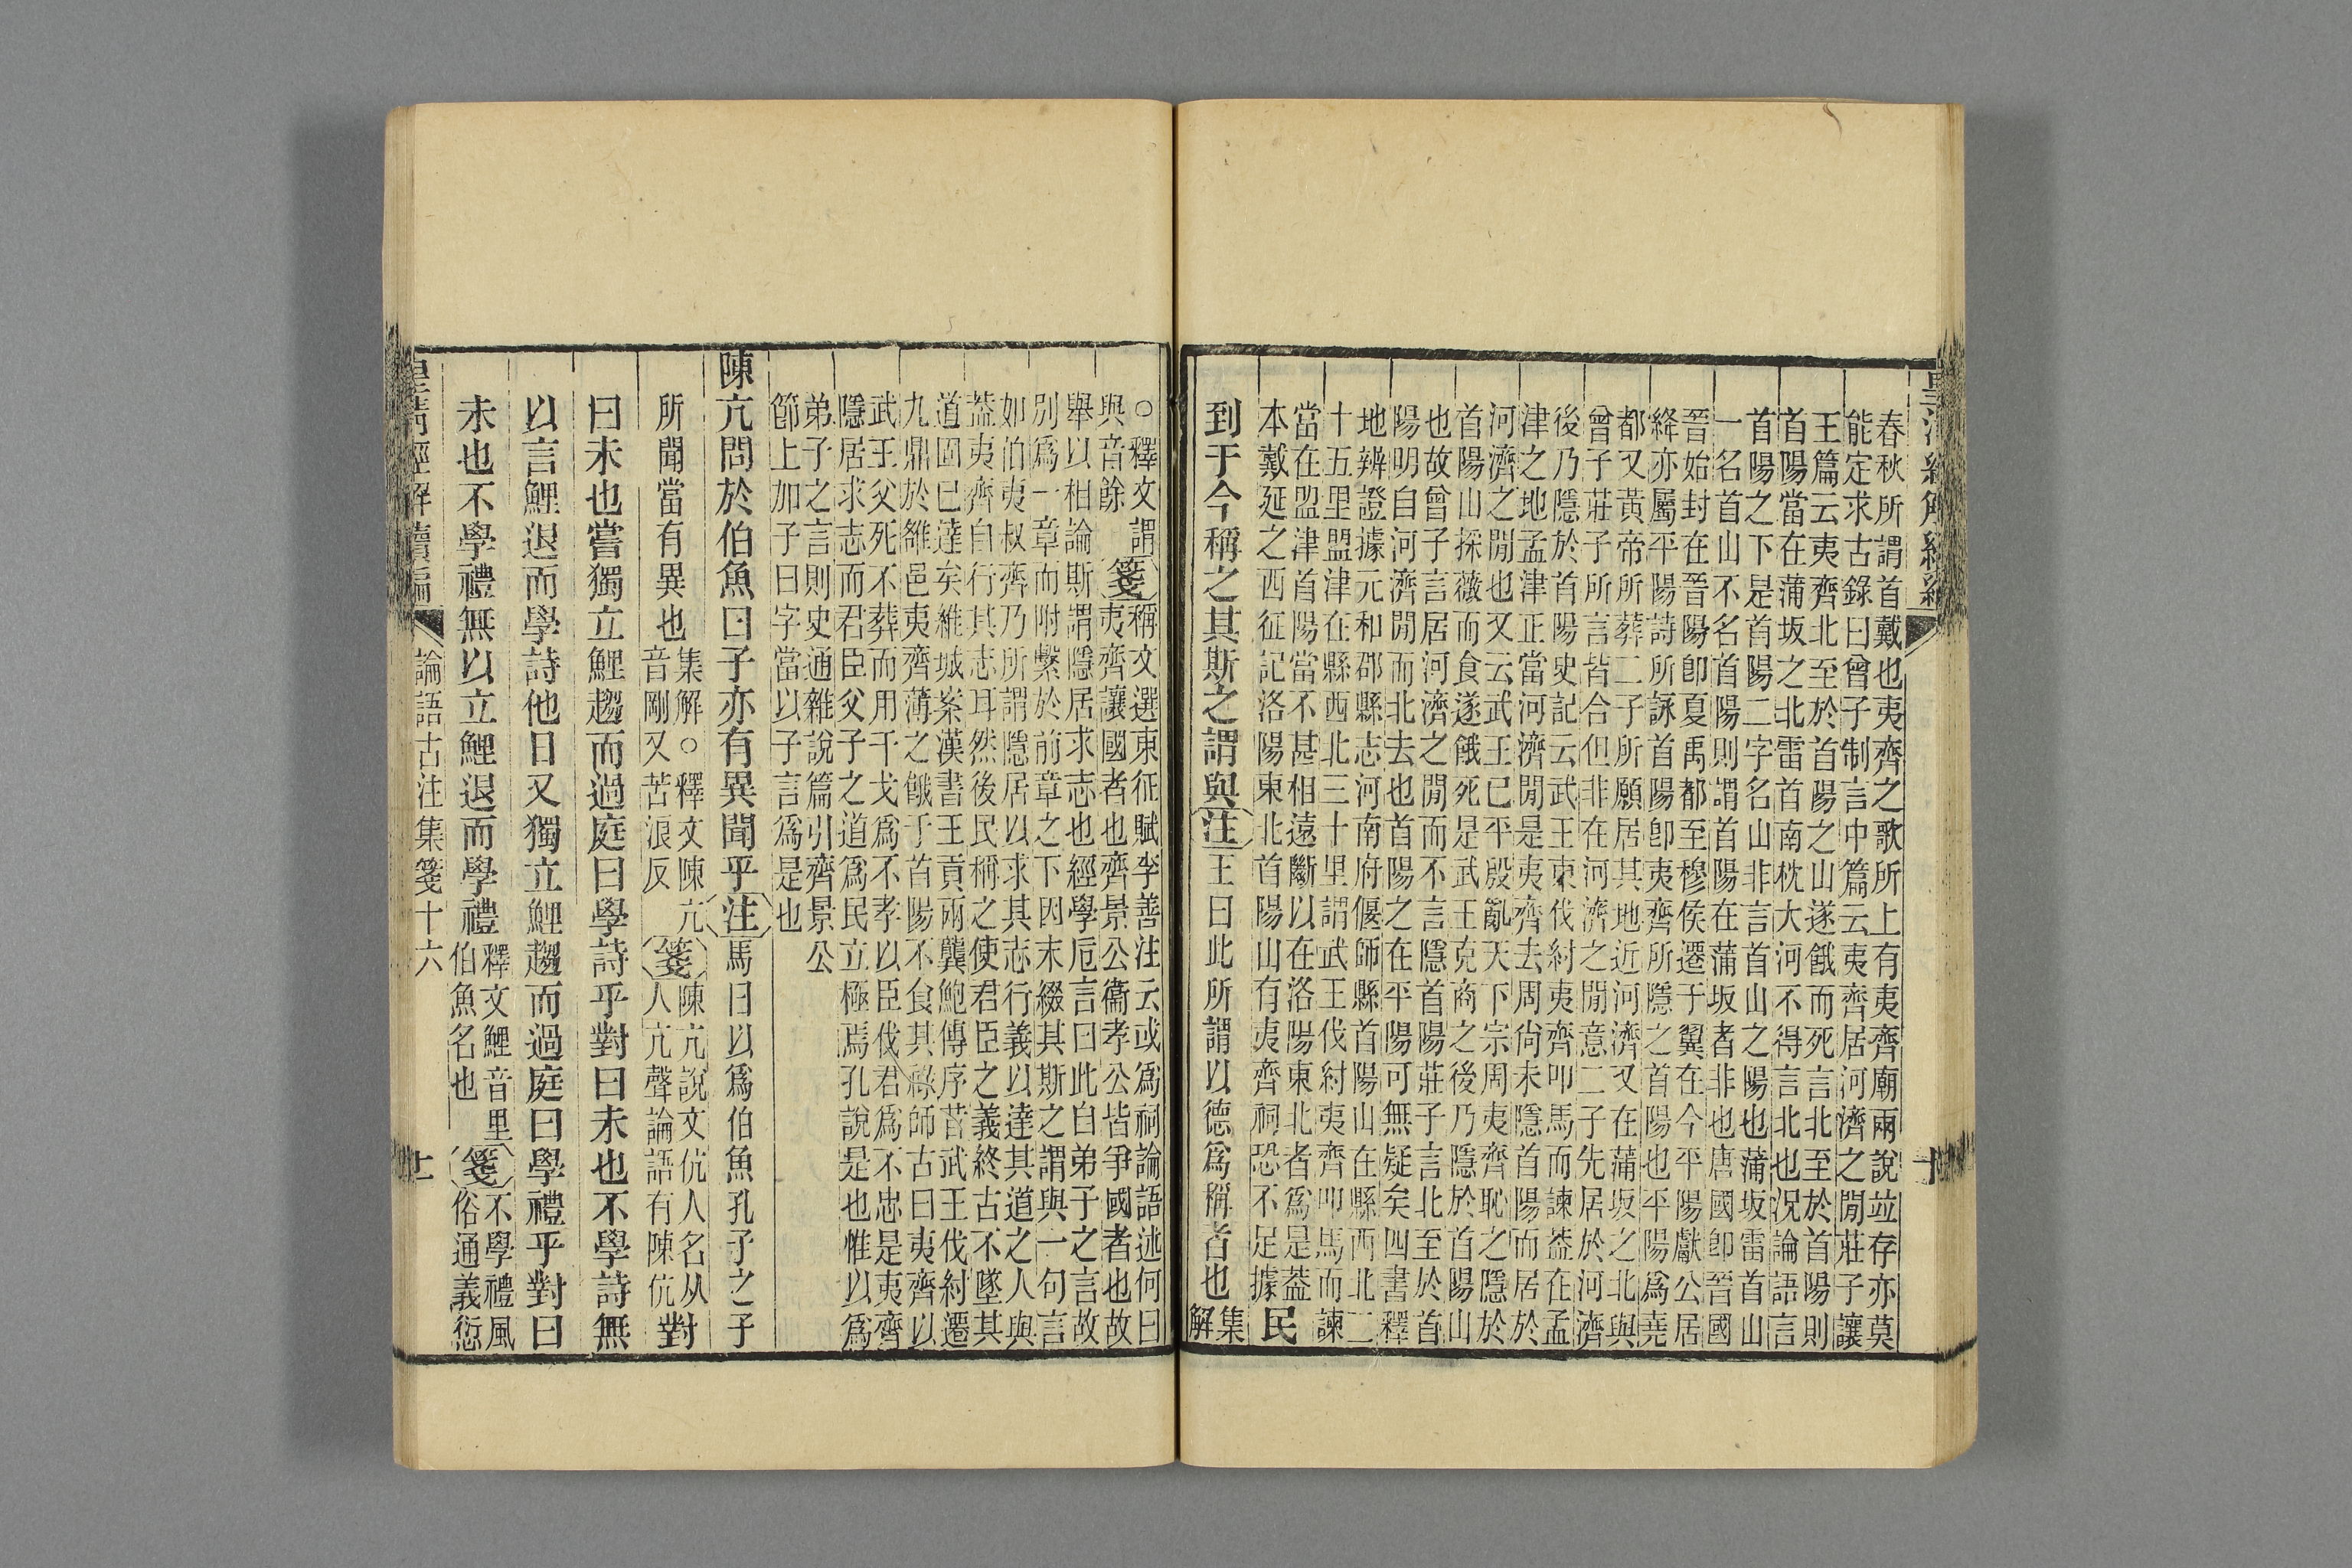 春秋所謂首戴也夷齊之歌所上有夷齊廟兩說竝存亦莫
能定求古錄曰曾子制言中篇云夷齊居河濟之閒莊子讓
王篇云夷齊北至於首陽之山遂餓而死言北至於首陽則
首陽當在蒲坂之北雷首南枕大河不得言北也況論語言
首陽之下是首陽二字名山非言首山之陽也蒲坂雷首山
一名首山不名首陽則謂首陽在蒲坂者非也唐國卽晉國
晉始封在晉陽卽夏禹都至穆侯遷于翼在今平陽獻公居
絳亦屬平陽詩所詠首陽卽夷齊所隱之首陽也平陽爲堯
都又黃帝所葬二子所願居其地近河濟又在蒲坂之北與
曾子莊子所言皆合但非在河濟之閒意二子先居於河濟
後乃隱於首陽史記云武王東伐紂夷齊叩馬而諫葢在孟
津之地孟津正當河濟閒是夷齊去周尙未隱首陽而居於
河濟之閒也又云武王已平殷亂天下宗周夷齊恥之隱於
首陽山採薇而食遂餓死是武王克商之後乃隱於首陽山
也故曾子言居河濟之閒而不言隱首陽莊子言北至於首
陽明自河濟閒而北去也首陽之在平陽可無疑矣四書釋
地辨證據元和郡縣志河南府偃師縣首陽山在縣西北二
十五里盟津在縣西北三十里謂武王伐紂夷齊叩馬而諫
當在盟津首陽當不甚相遠斷以在洛陽東北者爲是葢
本戴延之西征記洛陽東北首陽山有夷齊祠恐不足據 民
到于今稱之其斯之謂與 注 王曰此所謂以德爲稱者也 集
解
○釋文謂 箋 稱文選東征賦李善注云或爲祠論語述何曰
與音餘 夷齊讓國者也齊景公衞孝公皆爭國者也故
舉以相論斯謂隱居求志也經學卮言曰此自弟子之言故
別爲一章而附繫於前章之下因末綴其斯之謂與一句言
如伯夷叔齊乃所謂隱居以求其志行義以達其道之人與
葢夷齊自行其志耳然後民稱之使君臣之義終古不墜其
道固已達矣維城案漢書王貢兩龔鮑傳序昔武王伐紂遷
九鼎於雒邑夷齊薄之餓于首陽不食其祿師古曰夷齊以
武王父死不葬而用干戈爲不孝以臣伐君爲不忠是夷齊
隱居求志而君臣父子之道爲民立極焉孔說是也惟以爲
弟子之言則史通雜說篇引齊景公
節上加子曰字當以子言爲是也
陳亢問於伯魚曰子亦有異聞乎 注 馬曰以爲伯魚孔子之子
所聞當有異也 集解○釋文陳亢 箋 陳亢說文伉人名从 對
音剛又苦浪反 人亢聲論語有陳伉
曰未也嘗獨立鯉趨而過庭曰學詩乎對曰未也不學詩無
以言鯉退而學詩他日又獨立鯉趨而過庭曰學禮乎對曰
未也不學禮無以立鯉退而學禮 釋文鯉音里 箋 不學禮風
伯魚名也 俗通義愆
論語古注集箋十六